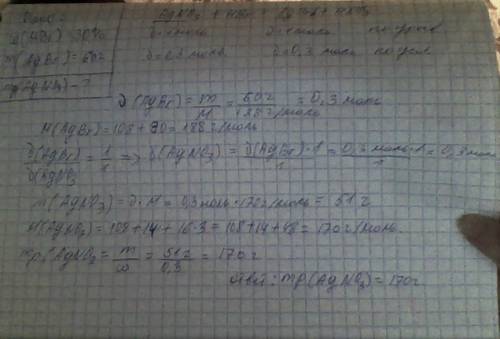 Дано:
AgNO₃ + HBr = AgBr + HNO₃
ω(HBr) = 30%
m(AgBr) = 60г
mp(AgNO₃) - ?
∂ = 0,3 моль ∂ = 0,3 моль по усл
∂(AgBr) = m/M = 60г/188г/моль = 0,3 моль
M(AgBr) = 108 + 80 = 188 г/моль
∂(AgBr)/∂(AgNO₃ = 1/1 => ∂(AgNO₃) = ∂(AgBr)·1/1 = 0,3 моль·1/1 = 0,3 моль
m(AgNO₃) = ∂·M = 0,3 моль·170г/моль = 51г
M(AgNO₃) = 108 + 14 + 16·3 = 108 + 14 + 48 = 170 г/моль.
mp.(AgNO₃ = m/ω = 51г/0,3 = 170г
ответ: mp.(AgNO₃) = 170г.